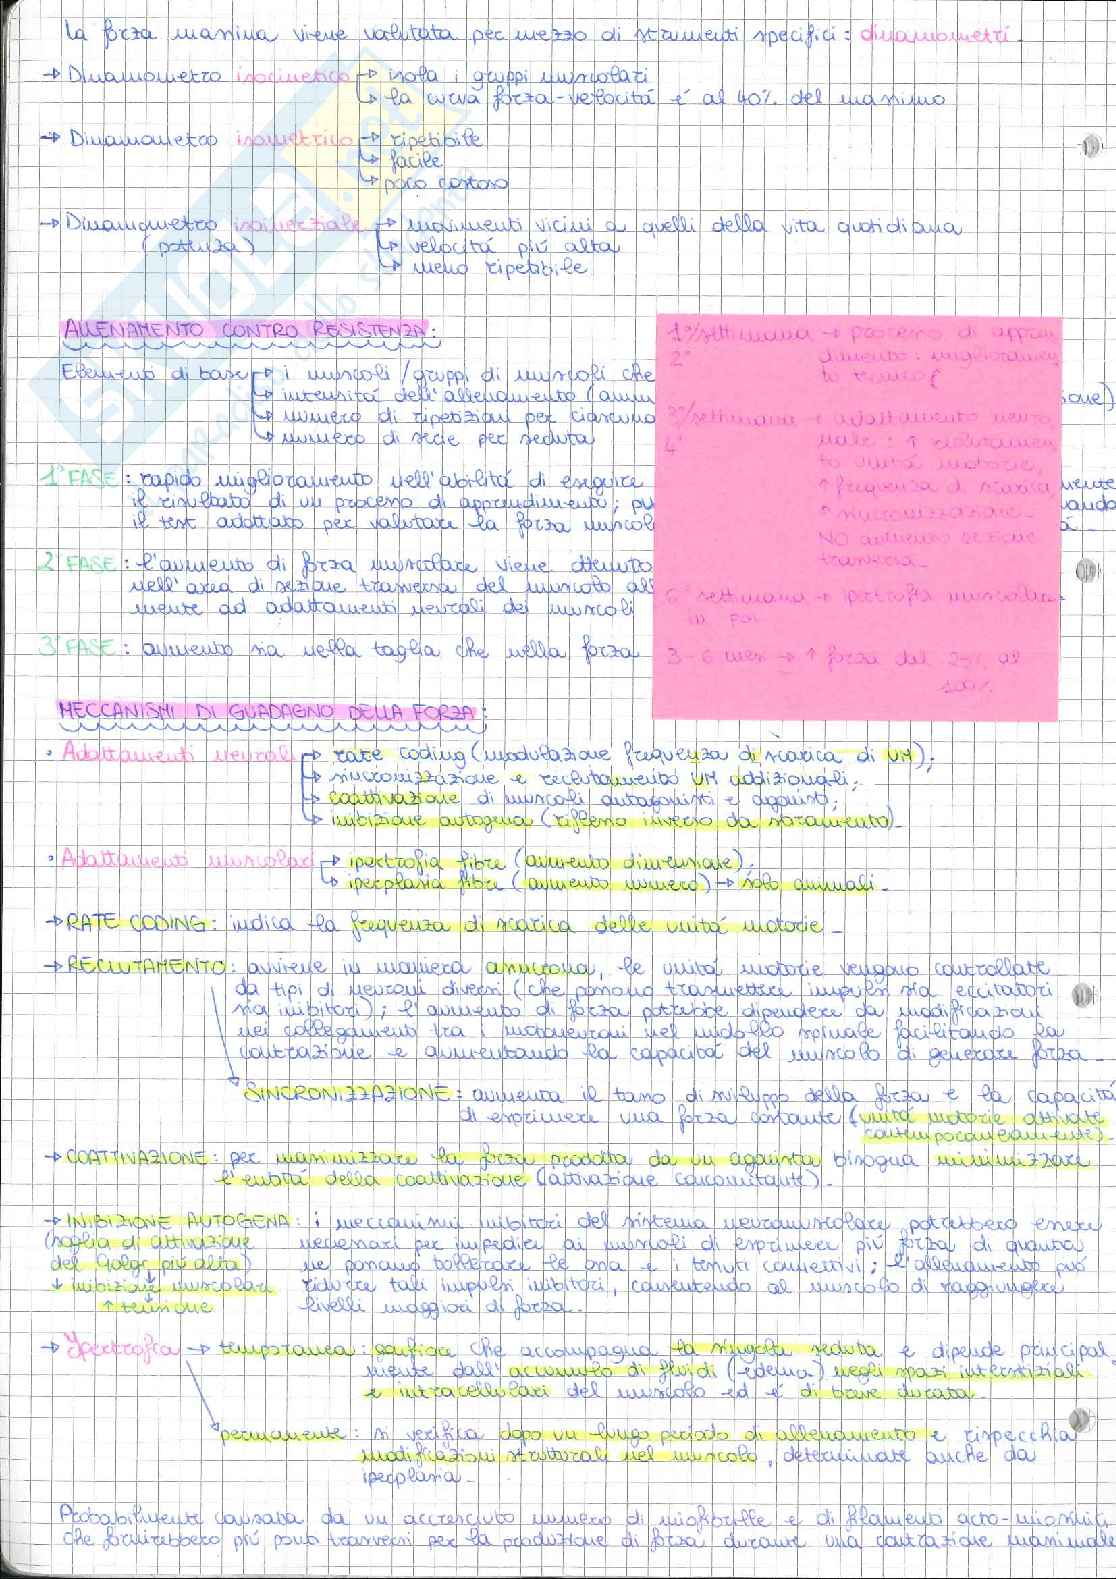 La forza massima viene valutata per mezzo di strumenti specifici: dinamometri.
→ Dinamometro isocinetico → isola i gruppi muscolari
→ la curva forza-velocità è al 40% del massimo
→ Dinamometro isometrico → ripetibile
→ facile
→ poco costoso
→ Dinamometro isoinerziale → movimenti vicini a quelli della vita quotidiana
(potenza) → velocità più alta
→ meno ripetibile
ALLENAMENTO CONTRO RESISTENZA:
Elementi di base → i muscoli/gruppi di muscoli che
→ intensità dell'allenamento
→ numero di ripetizioni per ciascuna
→ numero di serie per seduta
1° FASE: rapido miglioramento nell'abilità di eseguire
il risultato di un processo di apprendimento;
il test adottato per valutare la forza
2° FASE: l'aumento di forza muscolare viene ottenuto
nell'area di sezione trasversa del muscolo
mente ad adattamenti neurali dei muscoli
3° FASE: aumento sia nella taglia che nella forza
1°/settimana → processo di appren
2° dimento: miglioramen
to tecnica
3°/settimana → adattamento neuro
4° nale: ↑ reclutamen
to unità motorie,
↑ frequenza di scarica,
↑ sincronizzazione.
NO aumento sezione
trasversa.
6° settimana → ipertrofia muscolare
in poi
3-6 mesi → ↑ forza dal 25% al
100%
MECCANISMI DI GUADAGNO DELLA FORZA:
• Adattamenti neurali → rate coding (modulazione frequenza di scarica di UM);
→ sincronizzazione e reclutamento UM addizionali;
→ coattivazione di muscoli antagonisti e agonisti;
→ inibizione autogena (riflesso inverso da stiramento).
• Adattamenti muscolari → ipertrofia fibre (aumento dimensione);
→ iperplasia fibre (aumento numero) → solo animali.
→ RATE CODING: indica la frequenza di scarica delle unità motorie.
→ RECLUTAMENTO: avviene in maniera asincrona, le unità motorie vengono controllate
da tipi di neuroni diversi (che possono trasmettere impulsi sia eccitatori
sia inibitori); l'aumento di forza potrebbe dipendere da modificazioni
nei collegamento tra i motoneuroni nel midollo spinale facilitando la
contrazione e aumentando la capacità del muscolo di generare forza.
SINCRONIZZAZIONE: aumenta il tasso di sviluppo della forza e la capacità
di esprimere una forza costante (unità motorie attivate
contemporaneamente).
→ COATTIVAZIONE: per massimizzare la forza prodotta da un agonista bisogna minimizzare
l'entità della coattivazione (attivazione concomitante).
→ INIBIZIONE AUTOGENA: i meccanismi inibitori del sistema neuromuscolare potrebbero essere
(soglia di attivazione necessari per impedire ai muscoli di esprimere più forza di quanta
del Golgi più alta) ne possano tollerare le ossa e i tessuti connettivi; l'allenamento può
↓ inibizione muscolare ridurre tali impulsi inibitori, consentendo al muscolo di raggiungere
↑ tensione livelli maggiori di forza.
→ Ipertrofia → temporanea: gonfiore che accompagna la singola seduta e dipende principal
mente dall'accumulo di fluidi (edema) negli spazi interstiziali
e intracellulari del muscolo ed è di breve durata.
permanente: si verifica dopo un lungo periodo di allenamento e rispecchia
modificazioni strutturali nel muscolo, determinate anche da
iperplasia.
Probabilmente causata da un accresciuto numero di miofibrille e di filamenti acto-miosinici,
che fornirebbero più ponti trasversi per la produzione di forza durante una contrazione massimale